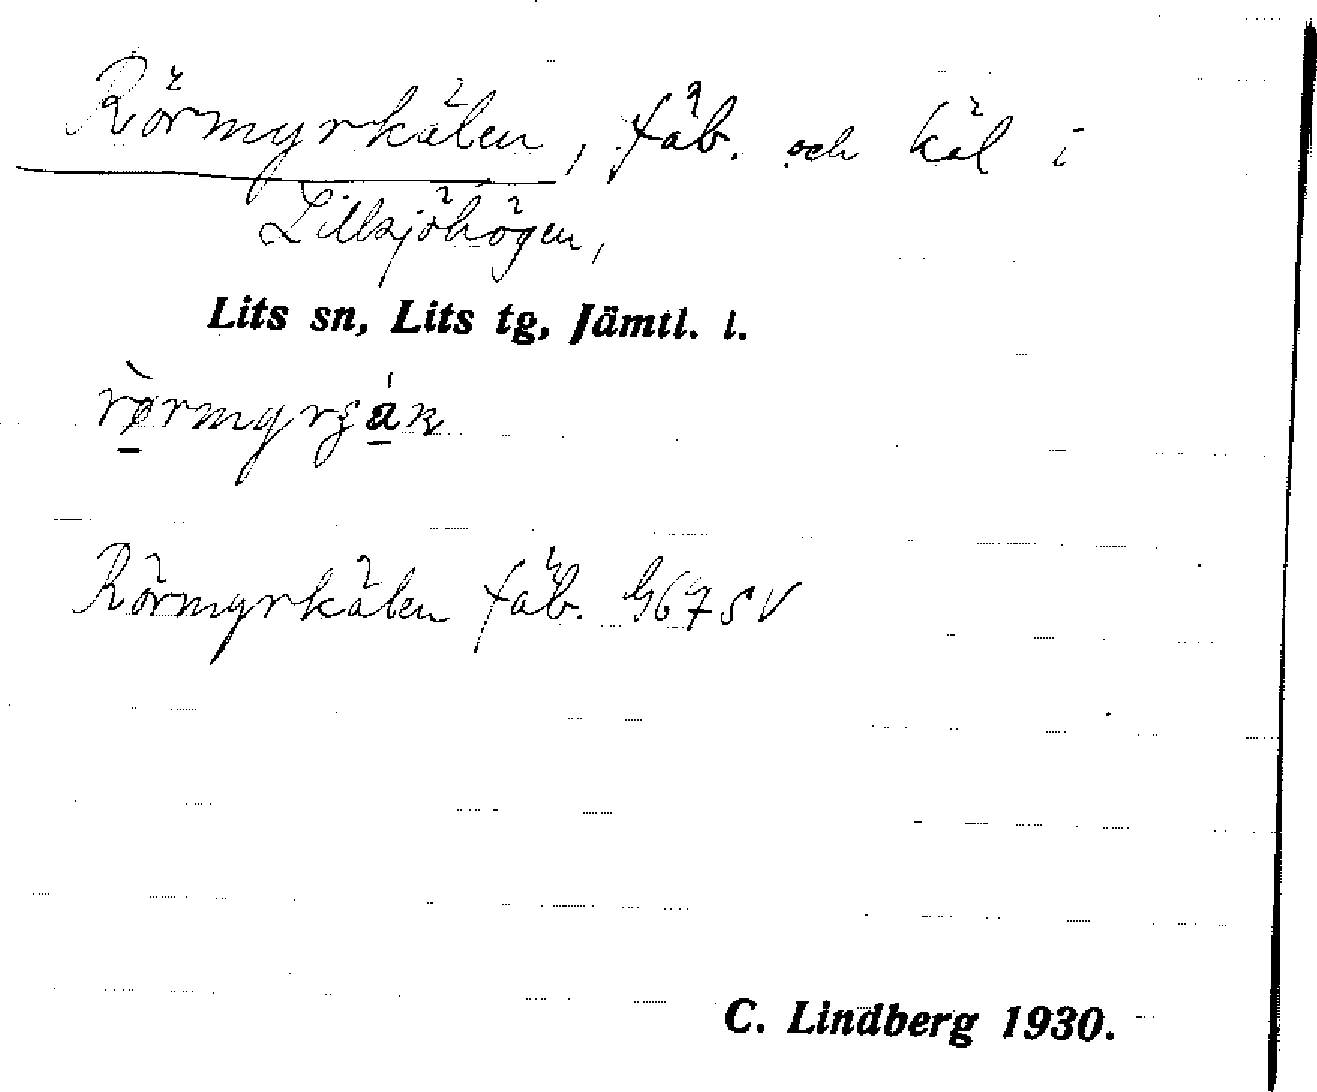 Rörmyrkälen, fäb. och käl i
Lillsjöhögen,
Lits sn, Lits tg, Jämtl. l.
Rörmyrkälen fäb. G67SV
C. Lindberg 1930.